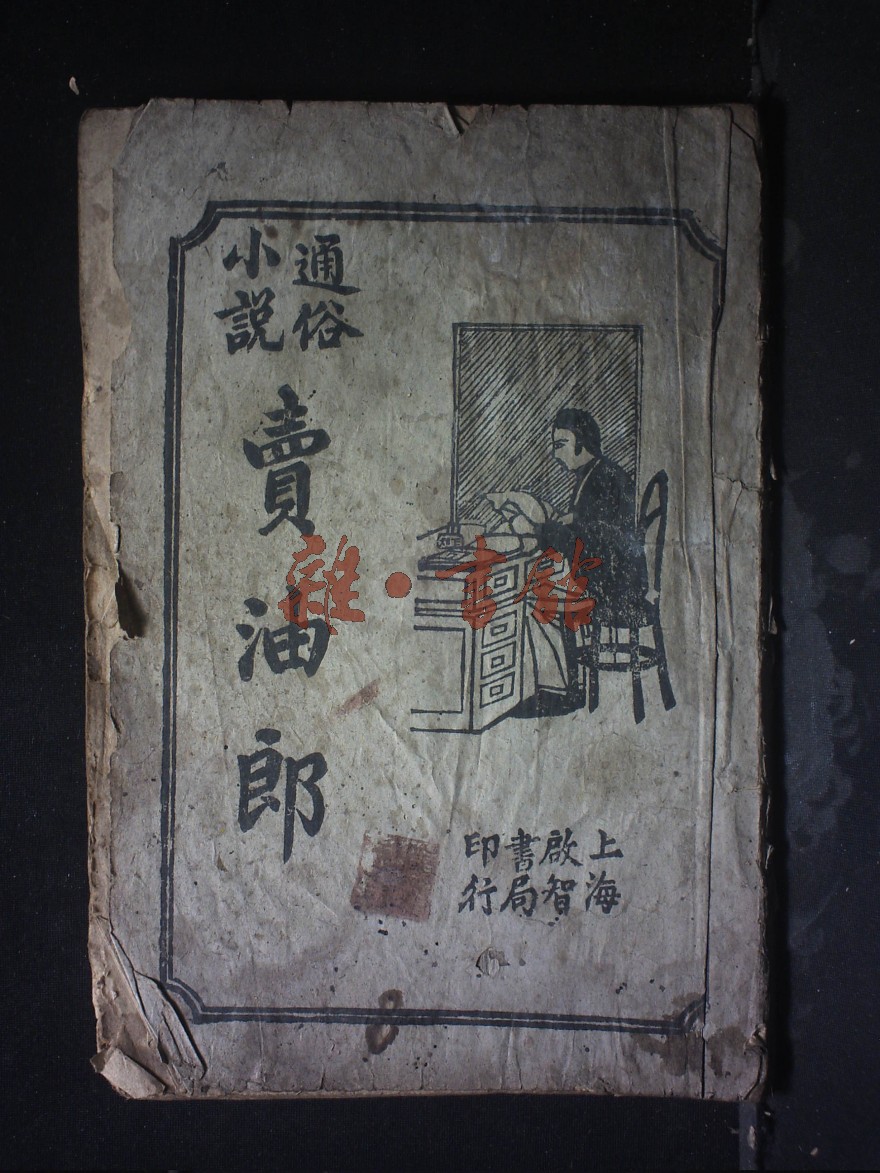 通俗
小説
賣油郎
上海
啟智
書局
印行
雜·書館